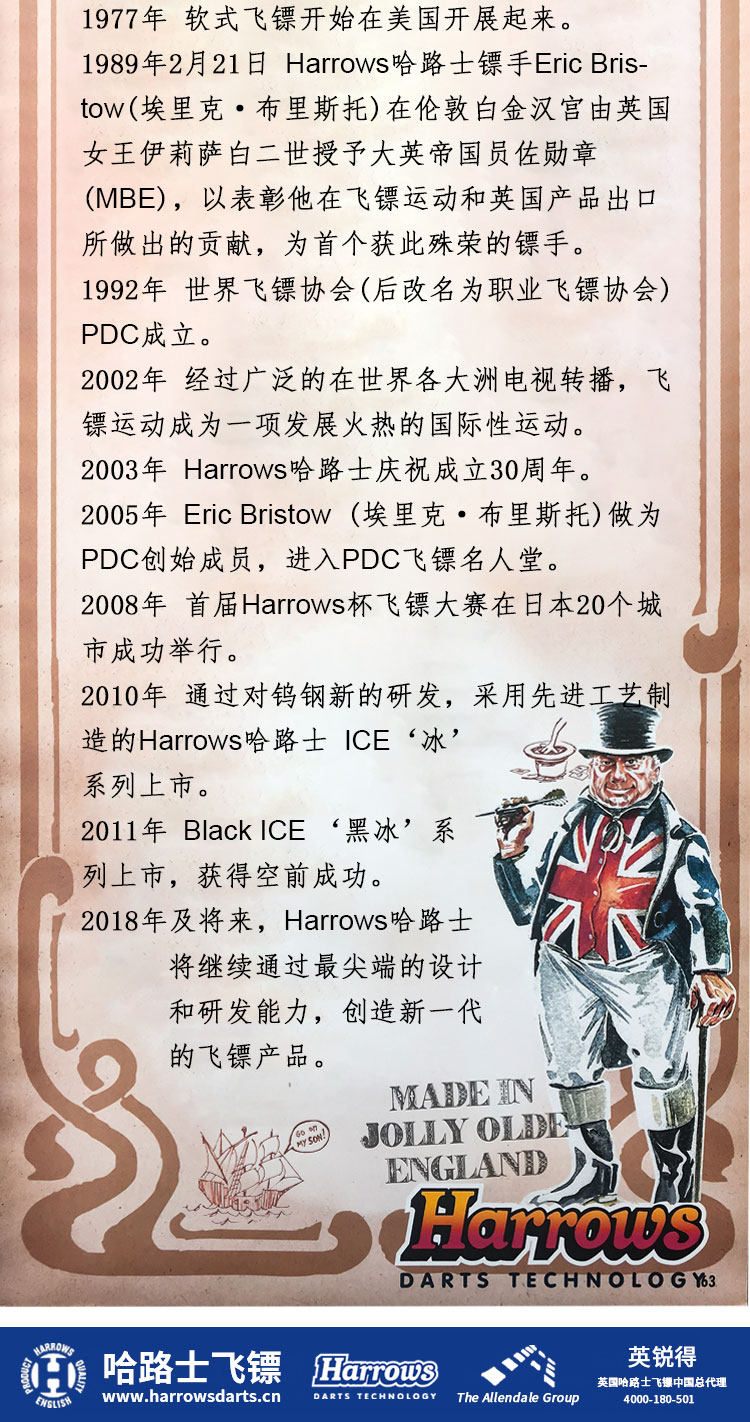 1977年 软式飞镖开始在美国开展起来。
1989年2月21日 Harrows哈路士镖手Eric Bris-
tow(埃里克·布里斯托)在伦敦白金汉宫由英国
女王伊莉萨白二世授予大英帝国员佐勋章
(MBE)，以表彰他在飞镖运动和英国产品出口
所做出的贡献，为首个获此殊荣的镖手。
1992年 世界飞镖协会(后改名为职业飞镖协会)
PDC成立。
2002年 经过广泛的在世界各大洲电视转播，飞
镖运动成为一项发展火热的国际性运动。
2003年 Harrows哈路士庆祝成立30周年。
2005年 Eric Bristow (埃里克·布里斯托)做为
PDC创始成员，进入PDC飞镖名人堂。
2008年 首届Harrows杯飞镖大赛在日本20个城
市成功举行。
2010年 通过对钨钢新的研发，采用先进工艺制
造的Harrows哈路士 ICE‘冰’
系列上市。
2011年 Black ICE ‘黑冰’系
列上市，获得空前成功。
2018年及将来，Harrows哈路士
将继续通过最尖端的设计
和研发能力，创造新一代
的飞镖产品。
MADE IN
JOLLY OLDE
ENGLAND
GO ON
MY SON!
Harrows
DARTS TECHNOLOGY
HARROWS
PRODUCT
QUALITY
H
ENGLISH
哈路士飞镖
www.harrowsdarts.cn
Harrows
DARTS TECHNOLOGY
The Allendale Group
英锐得
英国哈路士飞镖中国总代理
4000-180-501